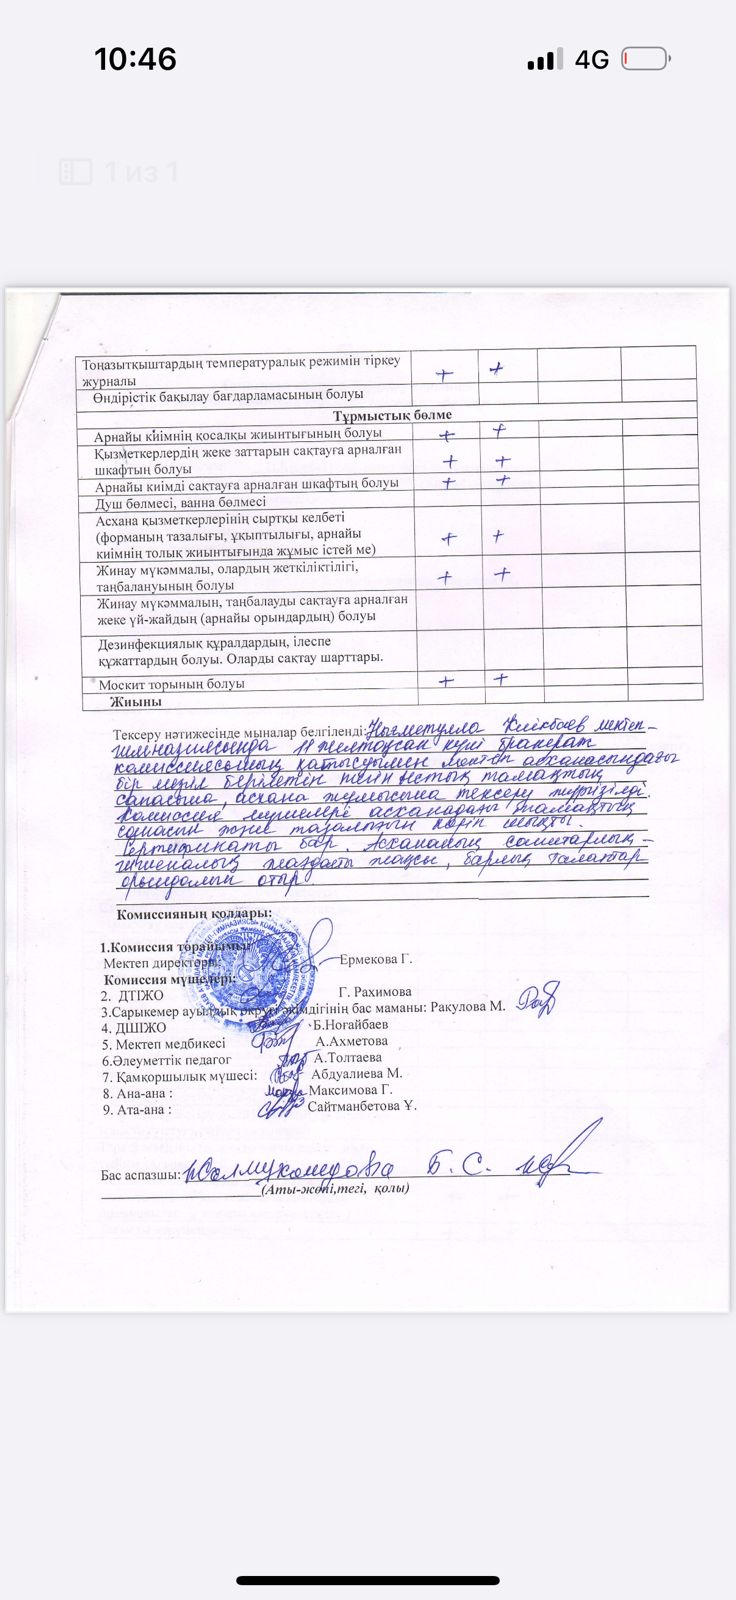 10:46
4G
1 из 1
Тоңазытқыштардың температуралық режимін тіркеу
журналы + +
Өндірістік бақылау бағдарламасының болуы
Тұрмыстық бөлме
Арнайы киімнің қосалқы жиынтығының болуы + +
Қызметкерлердің жеке заттарын сақтауға арналған
шкафтың болуы + +
Арнайы киімді сақтауға арналған шкафтың болуы + +
Душ бөлмесі, ванна бөлмесі
Асхана қызметкерлерінің сыртқы келбеті
(форманың тазалығы, ұқыптылығы, арнайы
киімнің толық жиынтығында жұмыс істей ме) + +
Жинау мүкәммалы, олардың жеткіліктілігі,
таңбалануының болуы + +
Жинау мүкәммалын, таңбалауды сақтауға арналған
жеке үй-жайдың (арнайы орындардың) болуы
Дезинфекциялық құралдардың, ілеспе
құжаттардың болуы. Оларды сақтау шарттары.
Москит торының болуы + +
Жиыны
Тексеру нәтижесінде мыналар белгіленді: Нығметулла Киікбаев мектеп-
гимназиясында 11 желтоқсан күні бракераж
комиссиясының қатысуымен мектеп асханасындағы
бір мезгіл берілетін тегін ыстық тамақтың
сапасына, асхана жұмысына тексеру жүргізілді.
Комиссия мүшелері асханадағы тамақтың
сапасын және тазалығын көріп шықты.
Сертификаты бар. Асхананың санитарлық-
гигиеналық жағдайы жақсы, барлық талаптар
орындалып отыр.
Комиссияның қолдары:
1.Комиссия төрайымы:
Мектеп директоры: Ермекова Г.
Комиссия мүшелері:
2. ДТІЖО Г. Рахимова
3.Сарыкемер ауылдық округі әкімдігінің бас маманы: Ракулова М.
4. ДШІЖО Б.Ноғайбаев
5. Мектеп медбикесі А.Ахметова
6.Әлеуметтік педагог А.Толтаева
7. Қамқоршылық мүшесі: Абдуалиева М.
8. Ана-ана : Максимова Г.
9. Ата-ана : Сайтманбетова Ұ.
Бас аспазшы: Б. С.
(Аты-жөні,тегі, қолы)